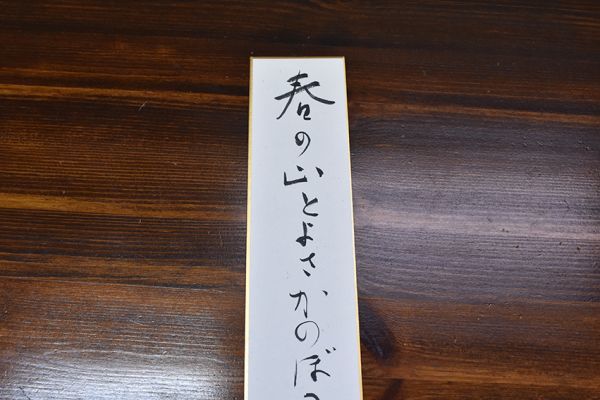 春の山とよさかのぼ